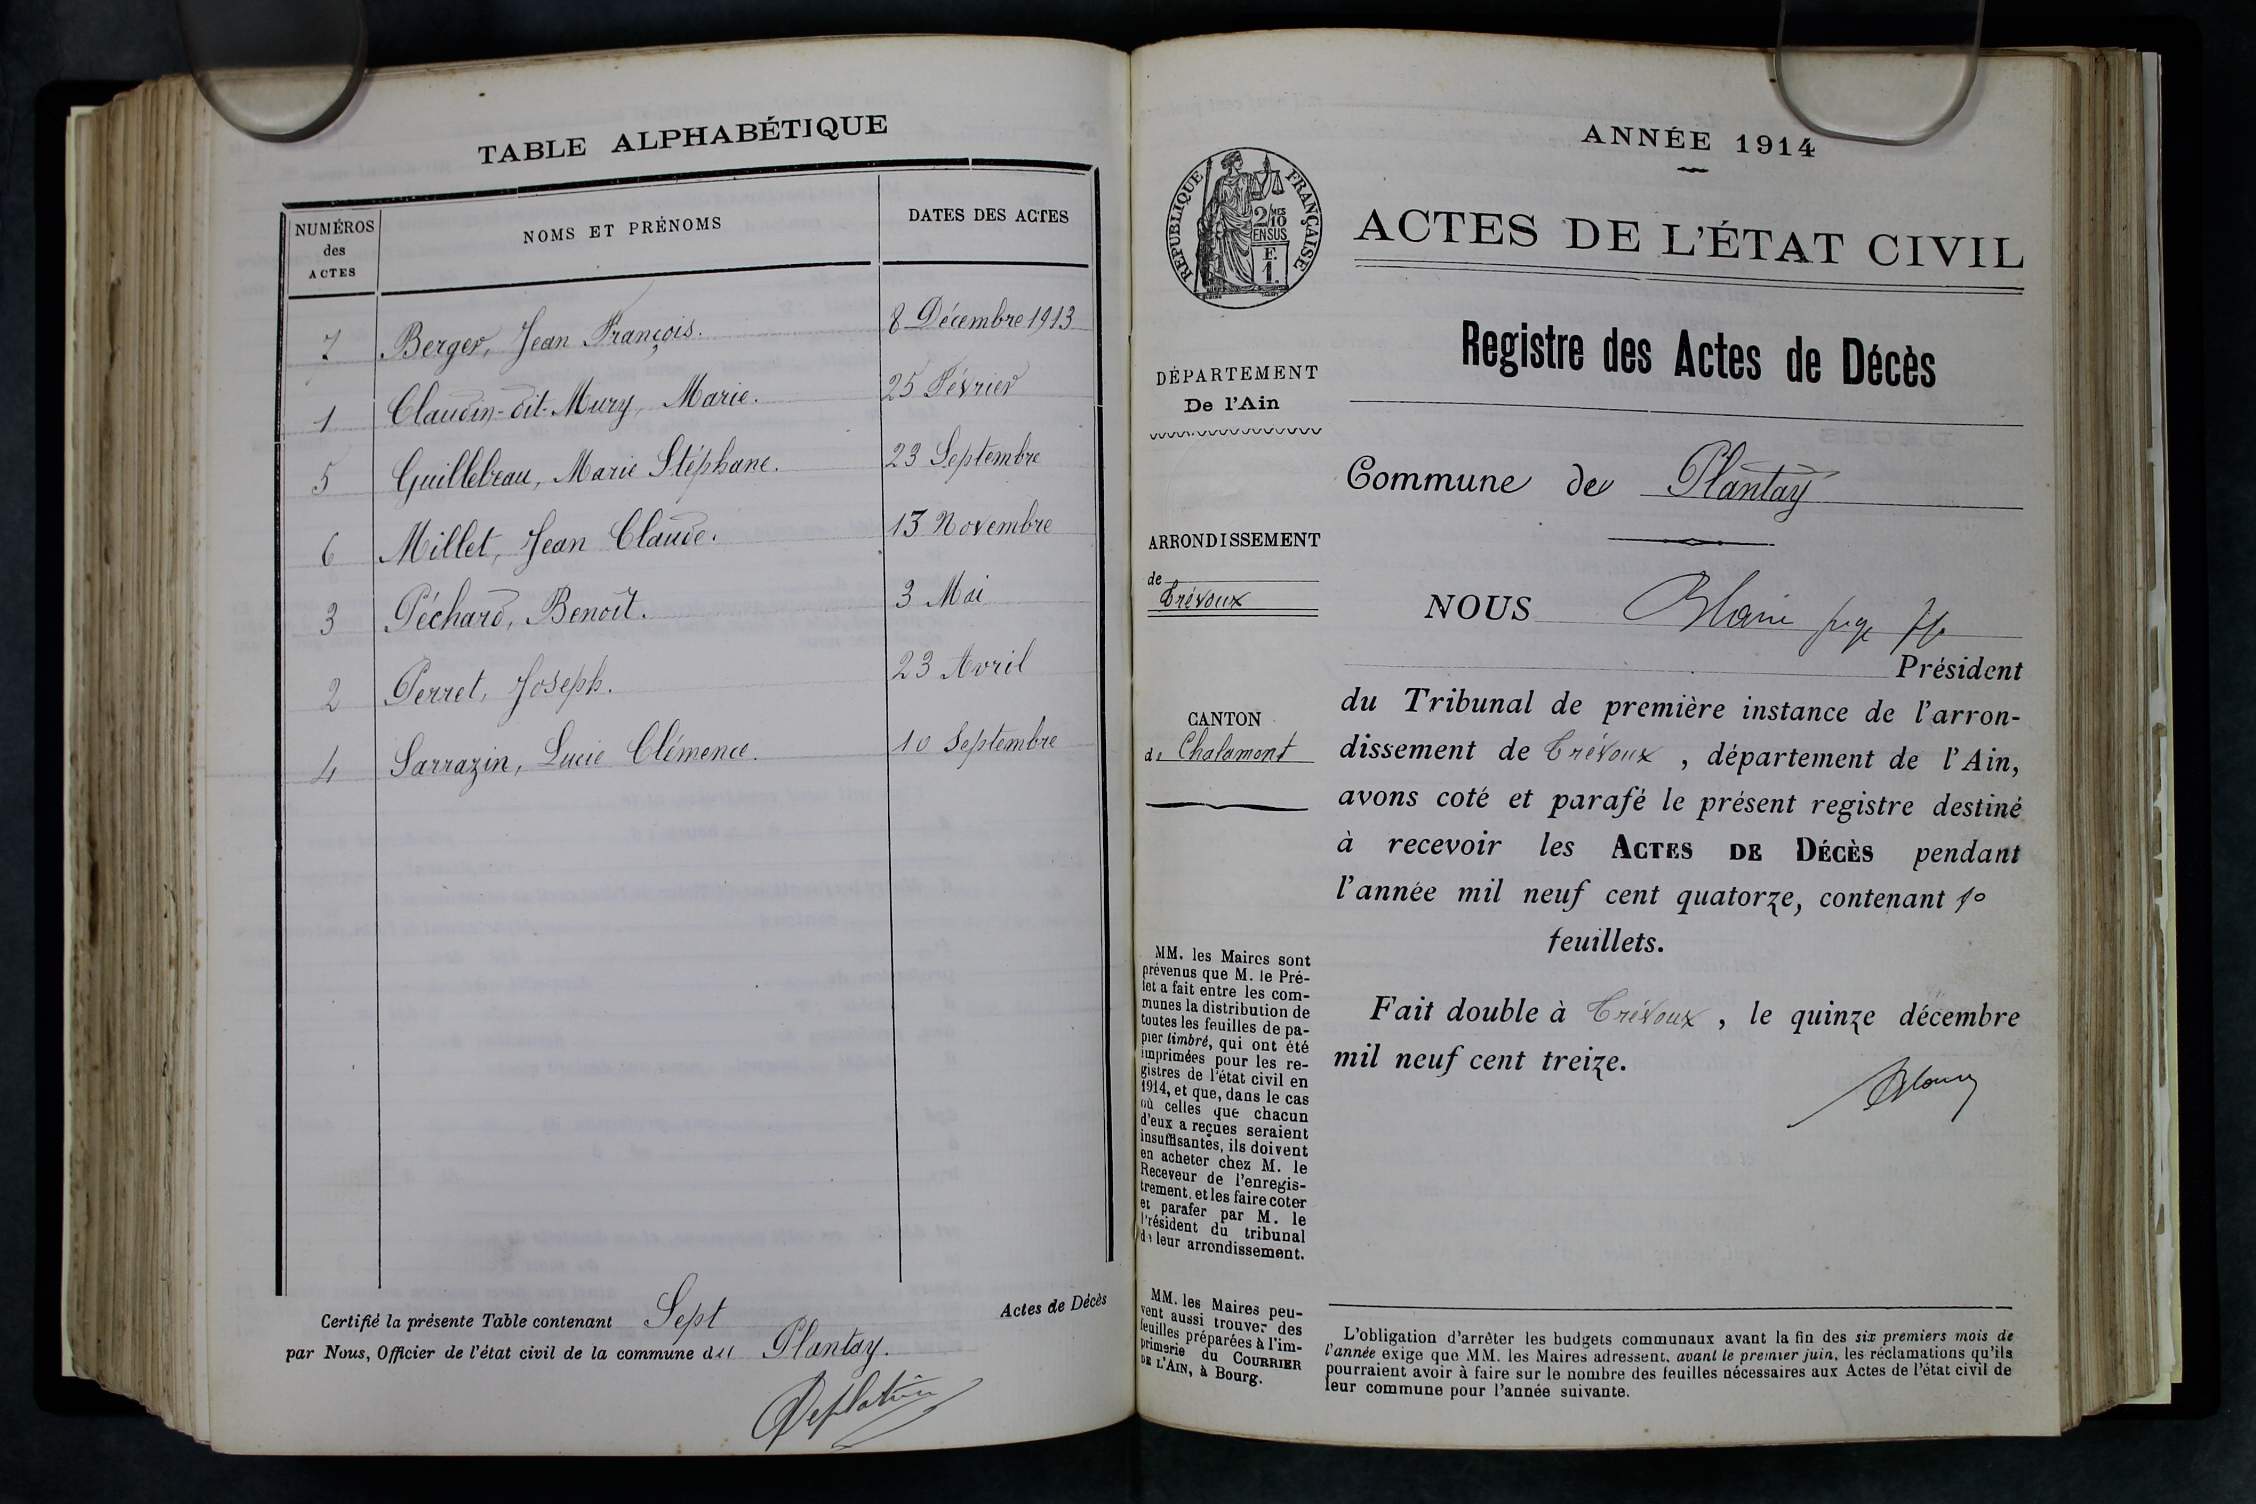 TABLE ALPHABÉTIQUE
NUMÉROS
des
ACTES
NOMS ET PRÉNOMS
DATES DES ACTES
7 Berger, Jean François. 8 Décembre 1913
1 Claudin-dit-Mury, Marie. 25 Février
5 Guillebeau, Marie Stéphane. 23 Septembre
6 Millet, Jean Claude. 13 Novembre
3 Péchard, Benoît. 3 Mai
2 Perret, Joseph. 23 Avril
4 Sarrazin, Lucie Clémence. 10 Septembre
Certifié la présente Table contenant Sept Actes de Décès
par Nous, Officier de l'état civil de la commune du Plantay.
ANNÉE 1914
RÉPUBLIQUE FRANÇAISE
2/10
MES
EN SUS
F.
1.
ACTES DE L'ÉTAT CIVIL
Registre des Actes de Décès
DÉPARTEMENT
De l'Ain
ARRONDISSEMENT
de
Trévoux
CANTON
de Chalamont
MM. les Maires sont
prévenus que M. le Pré-
fet a fait entre les com-
munes la distribution de
toutes les feuilles de pa-
pier timbré, qui ont été
imprimées pour les re-
gistres de l'état civil en
1914, et que, dans le cas
où celles que chacun
d'eux a reçues seraient
insuffisantes, ils doivent
en acheter chez M. le
Receveur de l'enregis-
trement, et les faire coter
et parafer par M. le
Président du tribunal
de leur arrondissement.
MM. les Maires peu-
vent aussi trouver des
feuilles préparées à l'im-
primerie du COURRIER
DE L'AIN, à Bourg.
Commune de Plantay
NOUS
Président
du Tribunal de première instance de l'arron-
dissement de Trévoux, département de l'Ain,
avons coté et parafé le présent registre destiné
à recevoir les ACTES DE DÉCÈS pendant
l'année mil neuf cent quatorze, contenant
feuillets.
Fait double à Trévoux, le quinze décembre
mil neuf cent treize.
L'obligation d'arrêter les budgets communaux avant la fin des six premiers mois de
l'année exige que MM. les Maires adressent, avant le premier juin, les réclamations qu'ils
pourraient avoir à faire sur le nombre des feuilles nécessaires aux Actes de l'état civil de
leur commune pour l'année suivante.